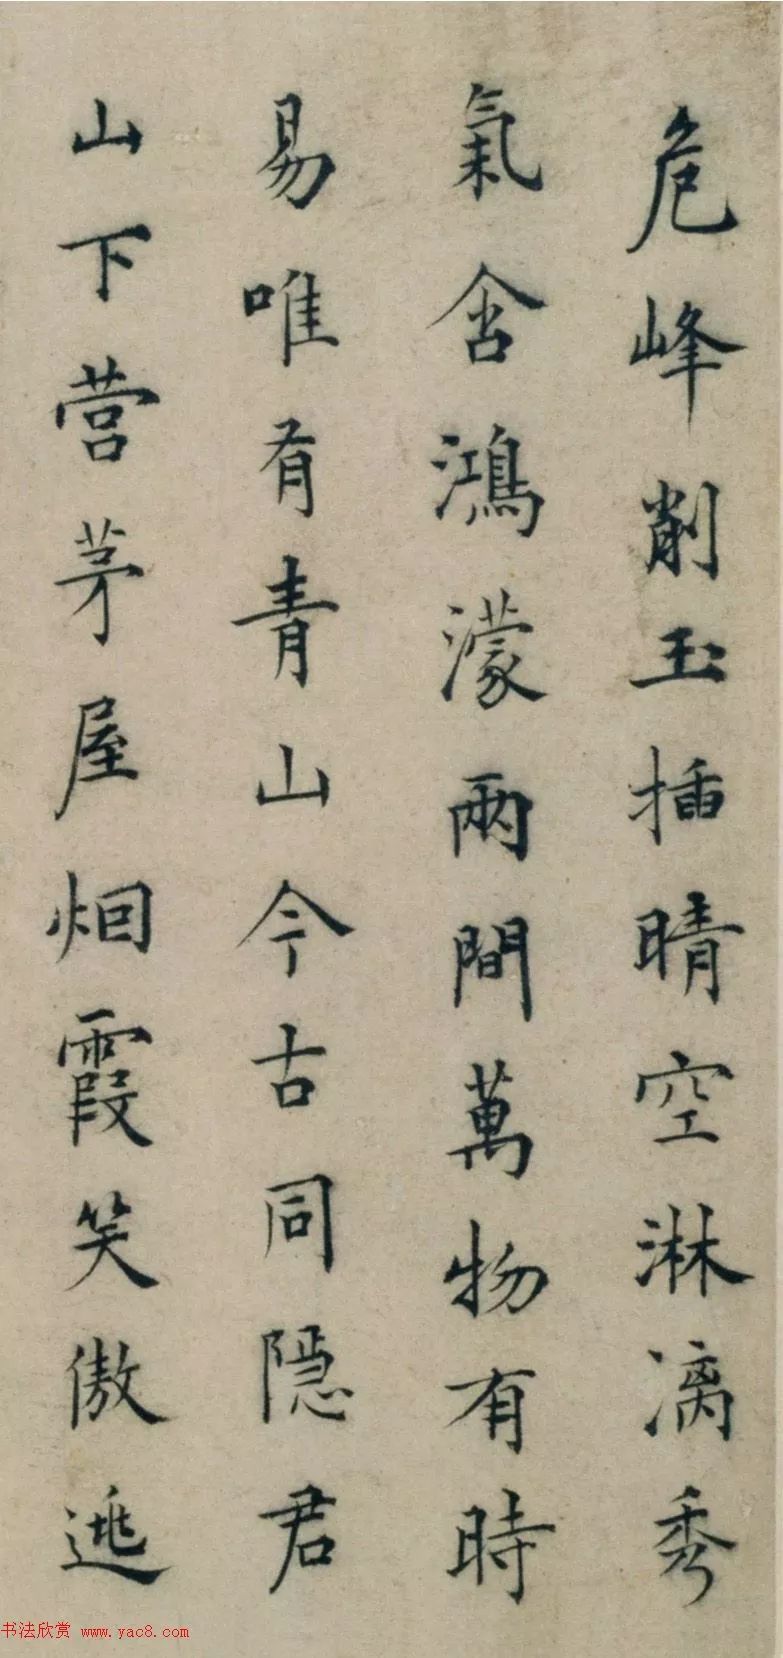 危峰削玉插晴空淋漓秀
氣含鴻濛兩間萬物有時
易唯有青山今古同隱君
山下营茅屋烟霞笑傲逃
书法欣赏 www.yac8.com